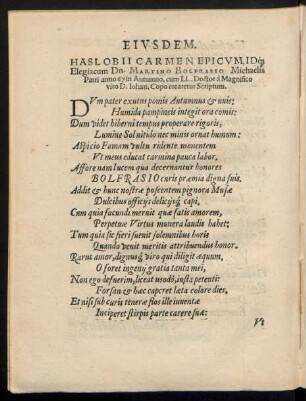 EIVSDEM.
HASLOBII CARMEN EPICVM, IDq;
Elegiacum Dn. MARTINO BOLFRASIO Michaelis
Patri anno 67 in Autumno, cum LL. Doctor á Magnifico
viro D. Iohan. Copo crearetur Scriptum.
DVm pater exutus pomis Autumnus & uuis:
Humida pampineis integit ora comis:
Dum videt hiberni tempus properare rigoris,
Lumine Sol nitido nec minus ornat humum:
Aspicio Famam vultu ridente monentem
Vt meus educat carmina pauca labor,
Affore nam lucem qua decernantur honores
BOLFRASIO curis præmia digna suis.
Addit & hunc nostræ poscentem pignora Musæ
Dulcibus officijs delicijsq; capi,
Cum quia facundi mernit quæ satis amorem,
Perpetuæ Virtus munera laudis habet:
Tum quia sic fieri sueuit solennibus horis
Quando venit meritis attribuendus honor.
Rarus amor, dignusq; viro qui diligit æquum,
O foret ingenij gratia tanta mei,
Non ego defuerim, liceat modò, insta petenti:
Forsan & hæc capcret læta colore dies,
Et nisi sub curis teneræ flos ille iuuentæ
Inciperet stirpis parte carere suæ:
Vt